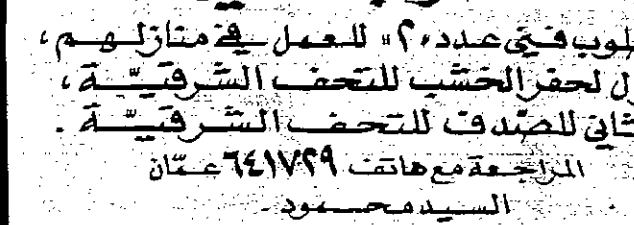 لوب فني عدد "٢" للعمل في منازلهم،
ل لحفر الخشب للتحف الشرقيّة،
ثاني للصّدف للتحف الشرقيّة.
المراجعة مع هاتف ٦٤١٧٢٩ عمّان
السيد محمود.